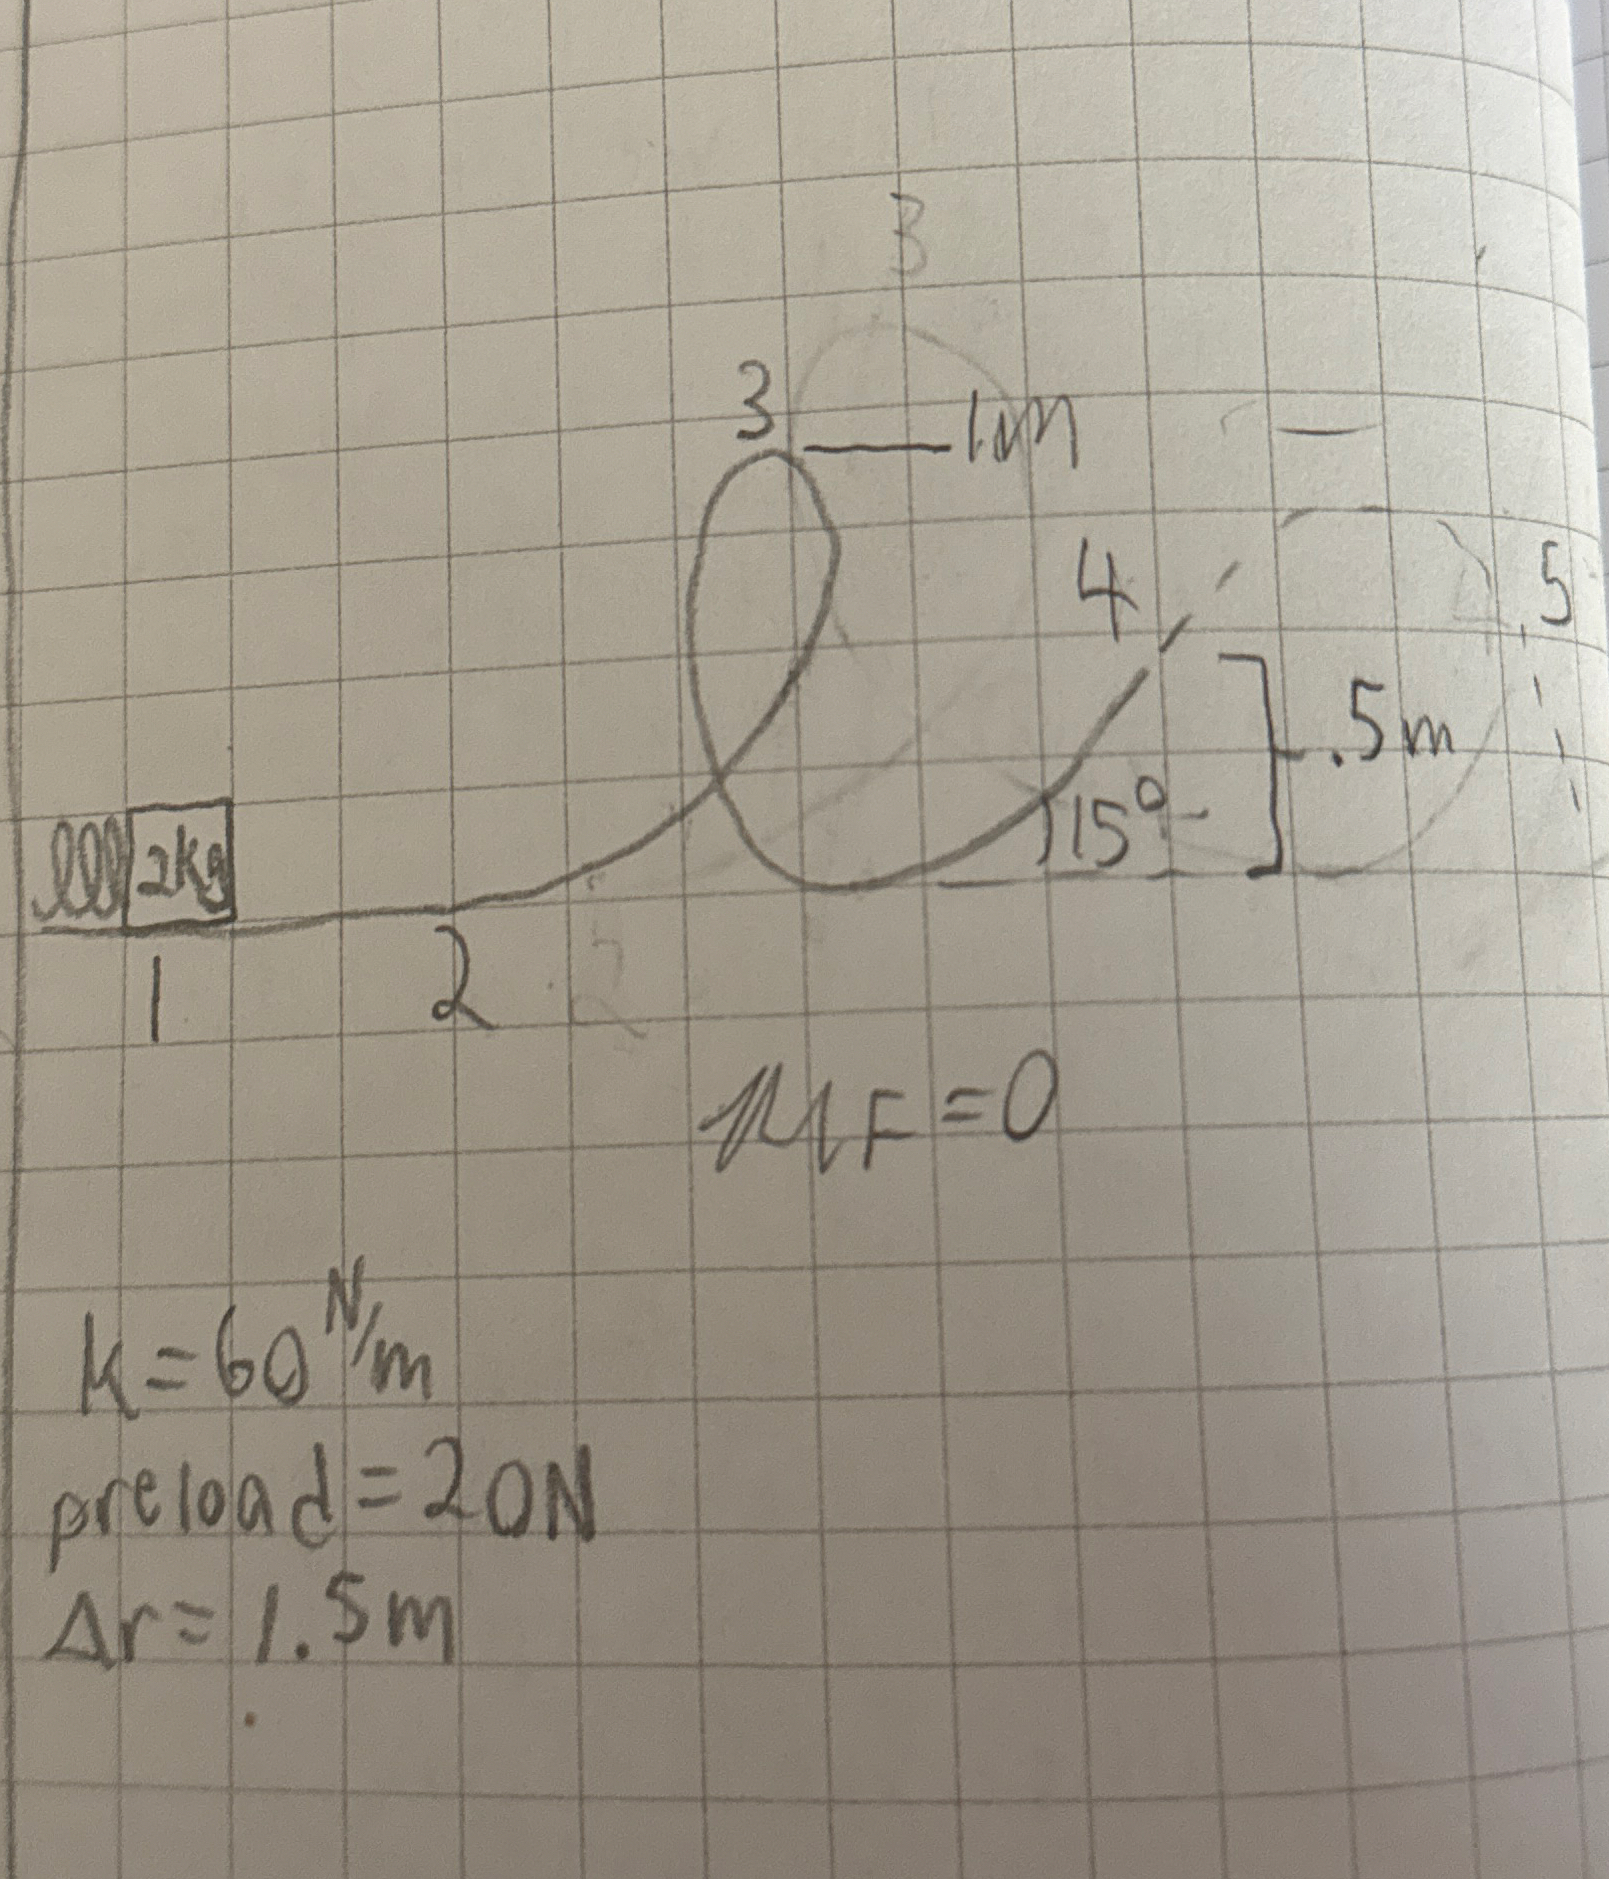 3
3
1m
4
.5
.5m
15°
2kg
1
2
2
μF=0
k=60 N/m
preload=20N
Δr=1.5m